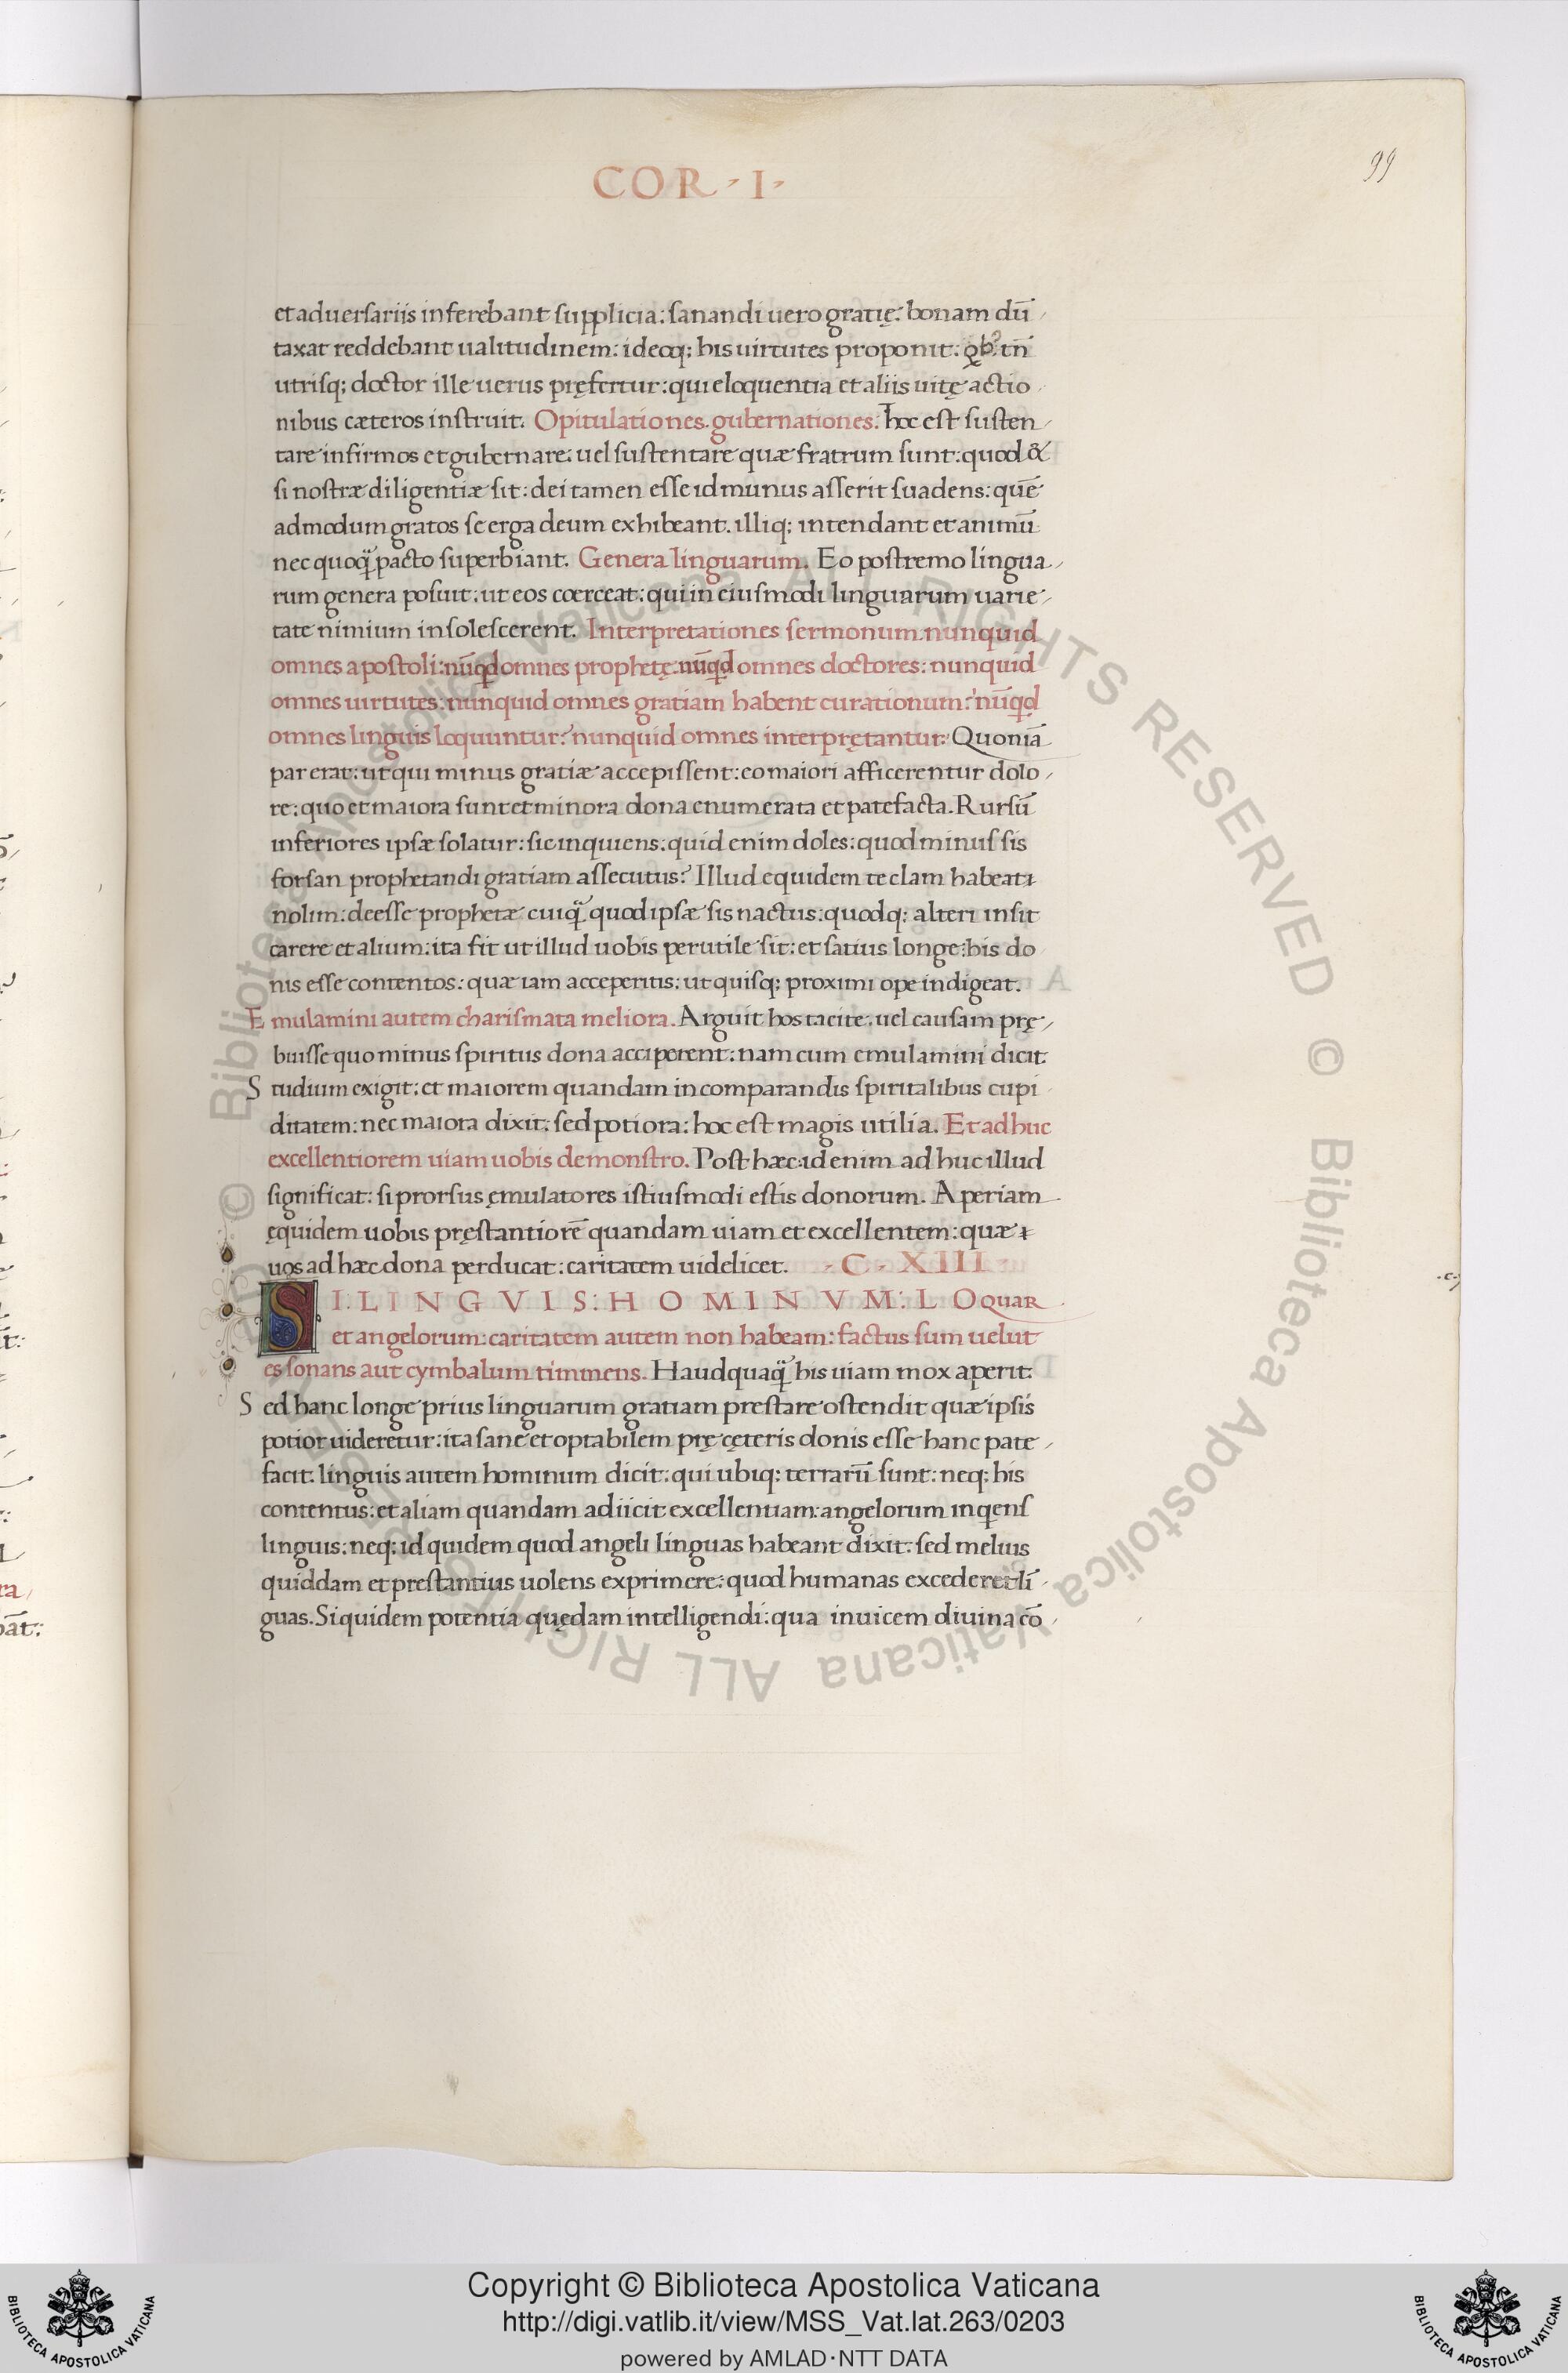 COR · I ·
99
et aduersariis inferebant supplicia: sanandi uero gratię: bonam dū
taxat reddebant ualitudinem: ideoq; his uirtutes proponit: qb; tn̄
utrisq; doctor ille uerus pręfertur: qui eloquentia et aliis uitę actio
nibus cæteros instruit. Opitulationes. gubernationes. hoc est susten
tare infirmos et gubernare: uel sustentare quæ fratrum sunt: quod &
si nostræ diligentiæ sit: dei tamen esse id munus asserit suadens: quē
admodum gratos se erga deum exhibeant. illiq; intendant et animū
nec quoq̄ pacto superbiant. Genera linguarum. Eo postremo lingua
rum genera posuit: ut eos coerceat: qui in eiusmodi linguarum uarie
tate nimium insolescerent. Interpretationes sermonum. nunquid
omnes apostoli: nūqd omnes prophetę: nūqd omnes doctores: nunquid
omnes uirtutes: nunquid omnes gratiam habent curationum: nūqd
omnes linguis loquuntur? nunquid omnes interprętantur: Quoniā
par erat: ut qui minus gratiæ accepissent: eo maiori afficerentur dolo
re: quo et maiora sunt et minora dona enumerata et patefacta. Rursū
inferiores ipsæ solatur: sic inquiens: quid enim doles: quod minus sis
forsan prophetandi gratiam assecutus? Illud equidem te clam haberi
nolim: deesse prophetæ cuiq̄ quod ipsæ sis nactus: quodq; alteri insit
carere et alium: ita fit ut illud uobis perutile sit: et satius longe: his do
nis esse contentos: quæ iam acceperitis: ut quisq; proximi ope indigeat.
Emulamini autem charismata meliora. Arguit hos tacite: uel causam prę
buisse quominus spiritus dona acciperent: nam cum emulamini dicit:
Studium exigit: et maiorem quandam in comparandis spiritalibus cupi
ditatem: nec maiora dixit: sed potiora: hoc est magis utilia. Et ad huc
excellentiorem uiam uobis demonstro. Post hæc: id enim ad huc illud
significat: si prorsus ęmulatores istiusmodi estis donorum. Aperiam
ęquidem uobis pręstantiorē quandam uiam et excellentem: quæ
uos ad hæc dona perducat: caritatem uidelicet. · C · XIII ·
SI. LINGVIS: HOMINVM: LOQUAR
et angelorum: caritatem autem non habeam: factus sum uelut
es sonans aut cymbalum tinniens. Haudquaq̄ his uiam mox aperit:
Sed hanc longe prius linguarum gratiam prestare ostendit quæ ipsis
potior uideretur: ita sane et optabilem prę cęteris donis esse hanc pate
facit. linguis autem hominum dicit: qui ubiq; terrarū sunt: neq; his
contentus: et aliam quandam adiicit excellentiam: angelorum inqens
linguis: neq; id quidem quod angeli linguas habeant dixit: sed melius
quiddam et prestantius uolens exprimere: quod humanas excederet lī
guas. Siquidem potentia quędam intelligendi: qua inuicem diuina cō
© Biblioteca Apostolica Vaticana ALL RIGHTS RESERVED © Biblioteca Apostolica Vaticana ALL RIGHTS RESERVED
Copyright © Biblioteca Apostolica Vaticana
http://digi.vatlib.it/view/MSS_Vat.lat.263/0203
powered by AMLAD·NTT DATA
BIBLIOTECA APOSTOLICA VATICANA
BIBLIOTECA APOSTOLICA VATICANA